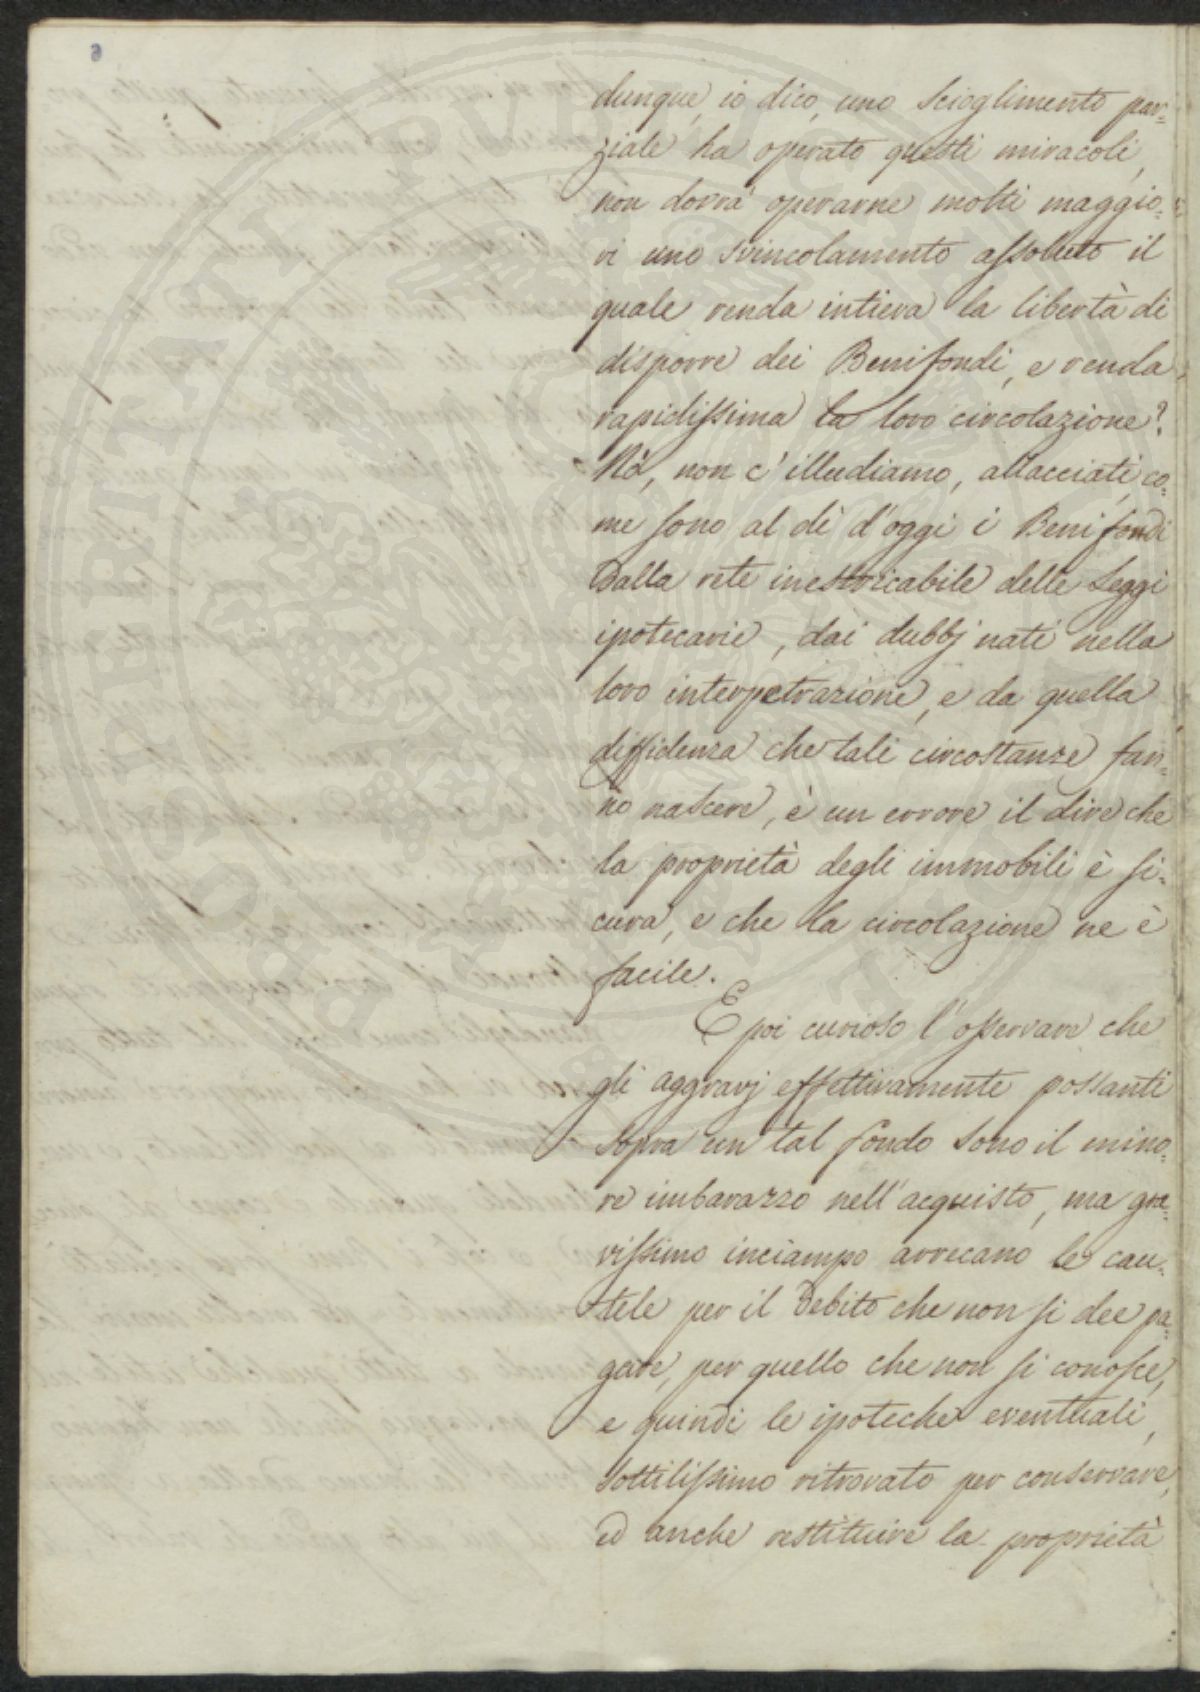 dunque, io dico, uno scioglimento par=
ziale ha operato questi miracoli,
non dovrà operarne molti maggio=
ri uno svincolamento assoluto il
quale renda intiera la libertà di
disporre dei Beni fondi, e renda
rapidissima la loro circolazione?
Nò, non c'illudiamo, allacciati, co=
me sono al dì d'oggi i Beni fondi
dalla rete inestricabile delle Leggi
ipotecarie, dai dubbj nati nella
loro interpetrazione, e da quella
diffidenza che tali circostanze fan=
no nascere, è un errore il dire che
la proprietà degli immobili è si=
cura, e che la circolazione ne è
facile.
E poi curioso l'osservare che
gli aggravj effettivamente possanti
sopra un tal fondo sono il mino=
re imbarazzo nell'acquisto, ma gra=
vissimo inciampo arrecano le cau=
tele per il debito che non si dee pa=
gare, per quello che non si conosce,
e quindi le ipoteche eventuali,
sottilissimo ritrovato per conservare,
ed anche restituire la proprietà
PROSPERITATI PUBLICAE